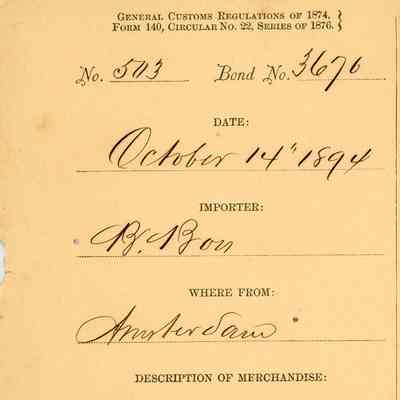 GENERAL CUSTOMS REGULATIONS OF 1874.
FORM 140, CIRCULAR NO. 22, SERIES OF 1876.
No. 503 Bond No. 3670
DATE:
October 14" 1894
IMPORTER:
B. Bon
WHERE FROM:
Amsterdam
DESCRIPTION OF MERCHANDISE: